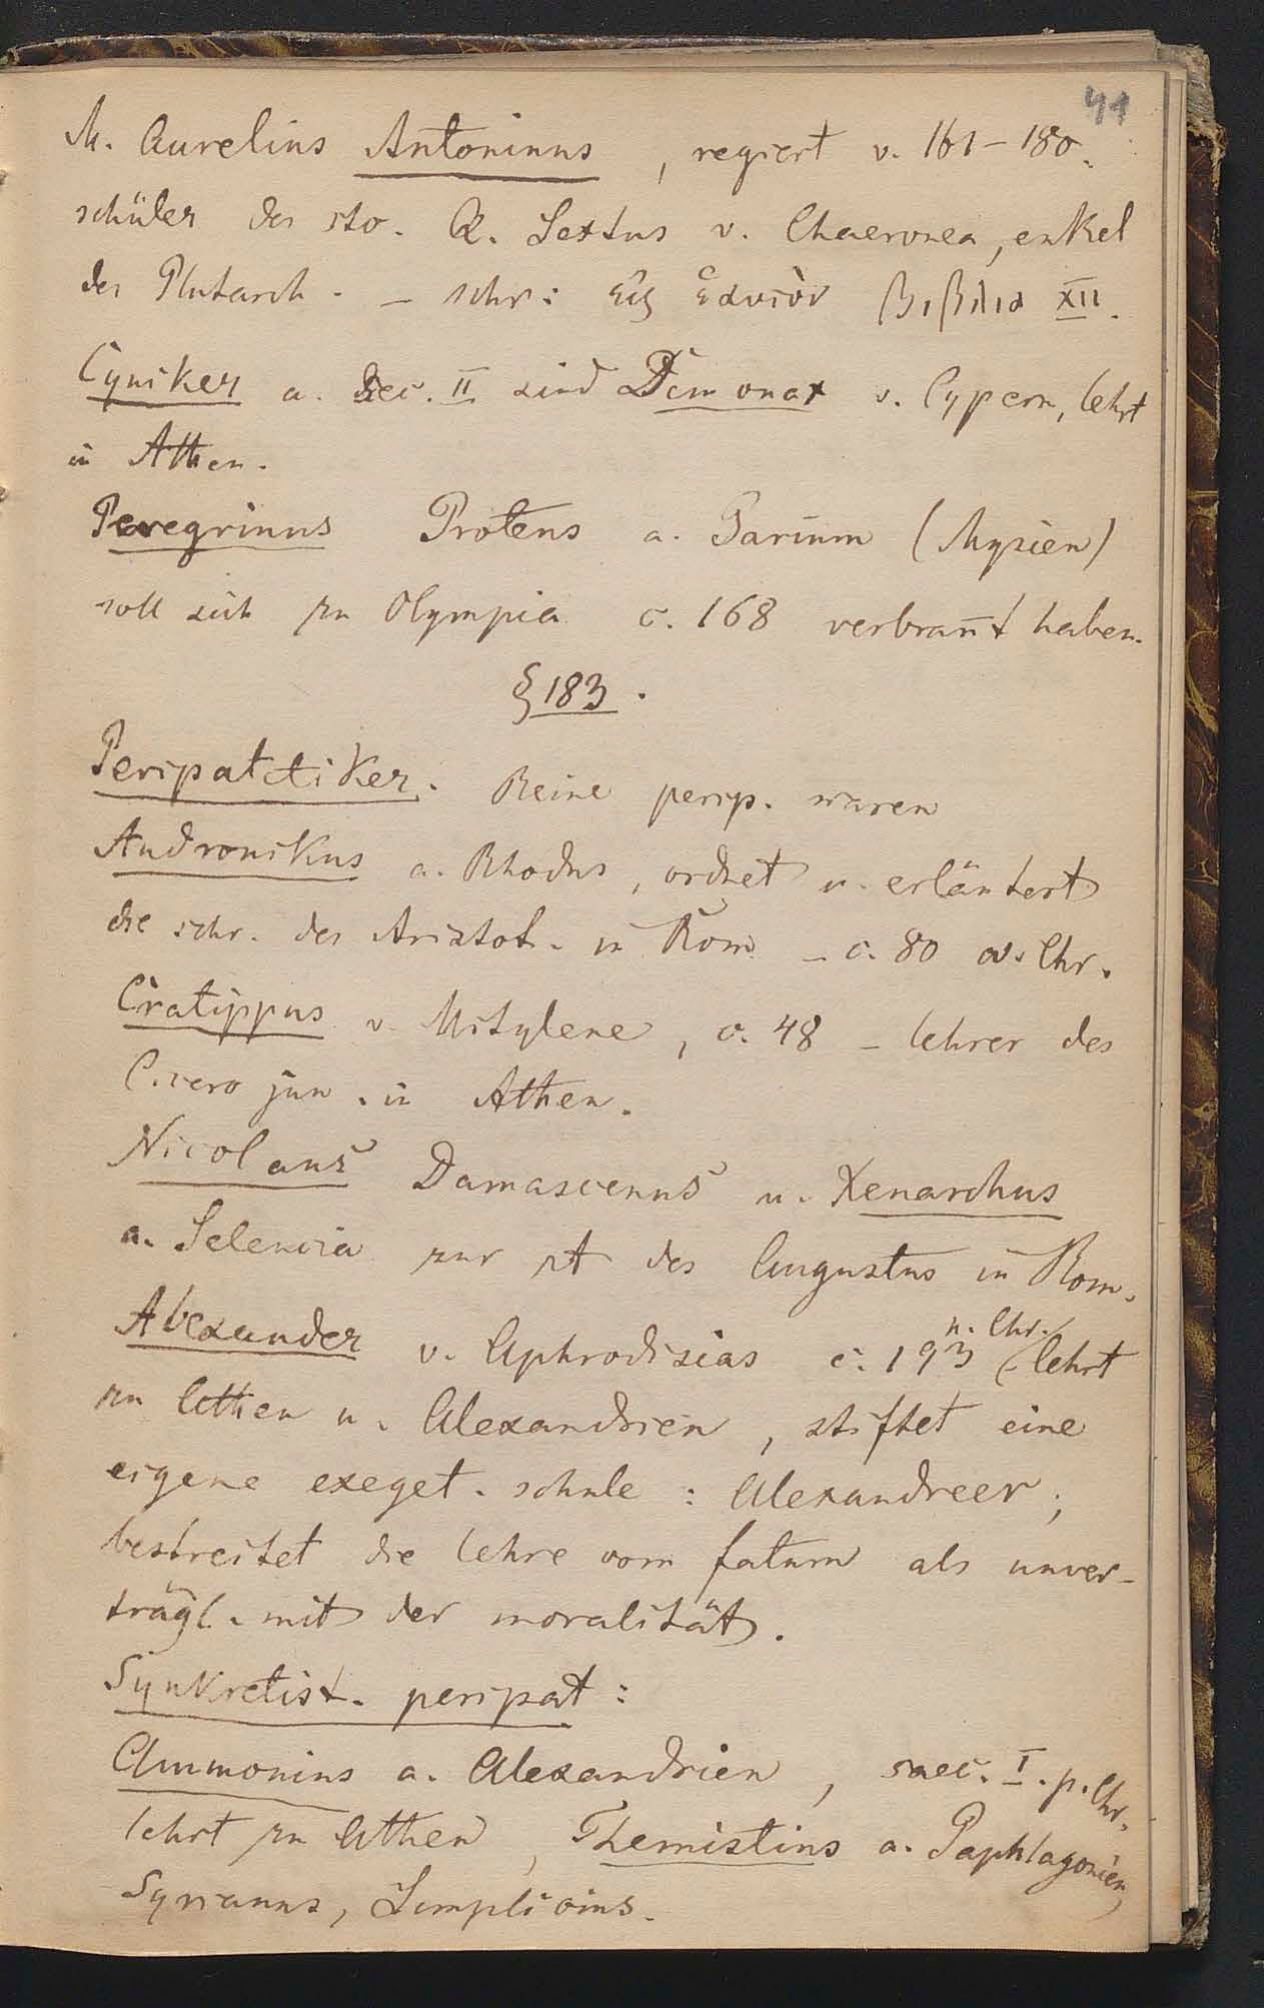 41
M. Aurelius Antoninus, regiert v. 161–180.
schüler des sto. Q. Sextus v. Chaeronea, enkel
des Plutarch. – schr: εἰς ἑαυτὸν βιβλία XII.
Cyniker a. sec. II sind Demonax v. Cypern, lehrt
in Athen.
Peregrinus Proteus a. Parium (Mysien)
soll sich zu Olympia c. 168 verbrant haben.
§ 183.
Peripatetiker. Reine perip. waren
Andronikus a. Rhodus, ordnet u. erläutert
die schr. des Aristot. in Rom – c. 80 a. Chr.
Cratippus v. Mitylene, c. 48 – lehrer des
Cicero jun. in Athen.
Nicolaus Damascenus u. Xenarchus
a. Seleucia zur zt des Augustus in Rom.
Alexander v. Aphrodisias c. 193 n. Chr. lehrt
zu Athen u. Alexandrien, stiftet eine
eigene exeget. schule: Alexandreer;
bestreitet die lehre vom fatum als unver-
trägl. mit der moralität.
Synkretist. peripat:
Ammonius a. Alexandrien, saec. I. p. Chr.
lehrt zu Athen, Themistius a. Paphlagonien,
Syrianus, Simplicius.